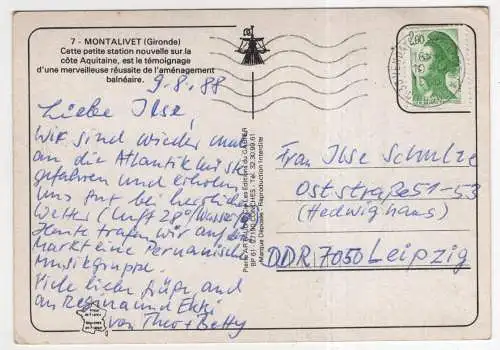 7 - MONTALIVET (Gironde)
Cette petite station nouvelle sur la
côte Aquitaine, est le témoignage
d'une merveilleuse réussite de l'aménagement
balnéaire.
9.8.88
Liebe Ilse,
Wir sind wieder mal
an die Atlantikküste
gefahren und erholen
uns gut bei herrlichem
Wetter (Luft 28°/Wasser
Heute trafen wir auf dem
Markt eine Peruanische
Musikgruppe.
Viele liebe Grüße auch
an Regina und Ekki
von Theo + Betty
Les Editions du GABIER
CONCHES - Tél. 32.30.99.61
Marque Déposée - Reproduction Interdite
2,20
Frau Ilse Schulze
Oststraße 51-53
(Hedwighaus)
DDR 7050 Leipzig